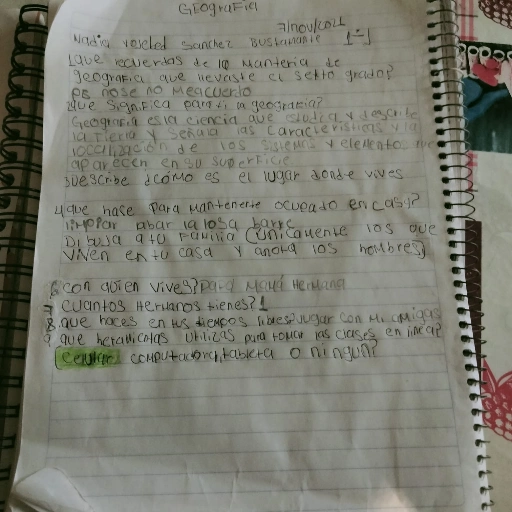 Geografia
7/nov/2021
Nadia Sanchez Bustamante
1 que recuerdas de la Manteria de
geografia que llevaste el sexto grado?
ps nose no meacuerdo
que significa para ti la geografia?
Geografia es la ciencia que estudia y describe
la tierra y señala las caracteristicas y la
localización de los sistemas y elementos que
aparecen en su superficie
3 Describe ¿cómo es el lugar donde vives
4 que hase para mantenerte ocupado en casa?
limpiar labar la losa barre
Dibuja a tu familia (Unicamente los que
viven en tu casa y anota los nombres)
6 con quien vives? papá Mamá Hermana
7 cuantos Hermanos tienes? 1
8 que haces en tus tiempos libres? Jugar con mi amigas
9 que herramientas utilizas para tomar las clases en linea?
Celular computadora, tableta o ningun?